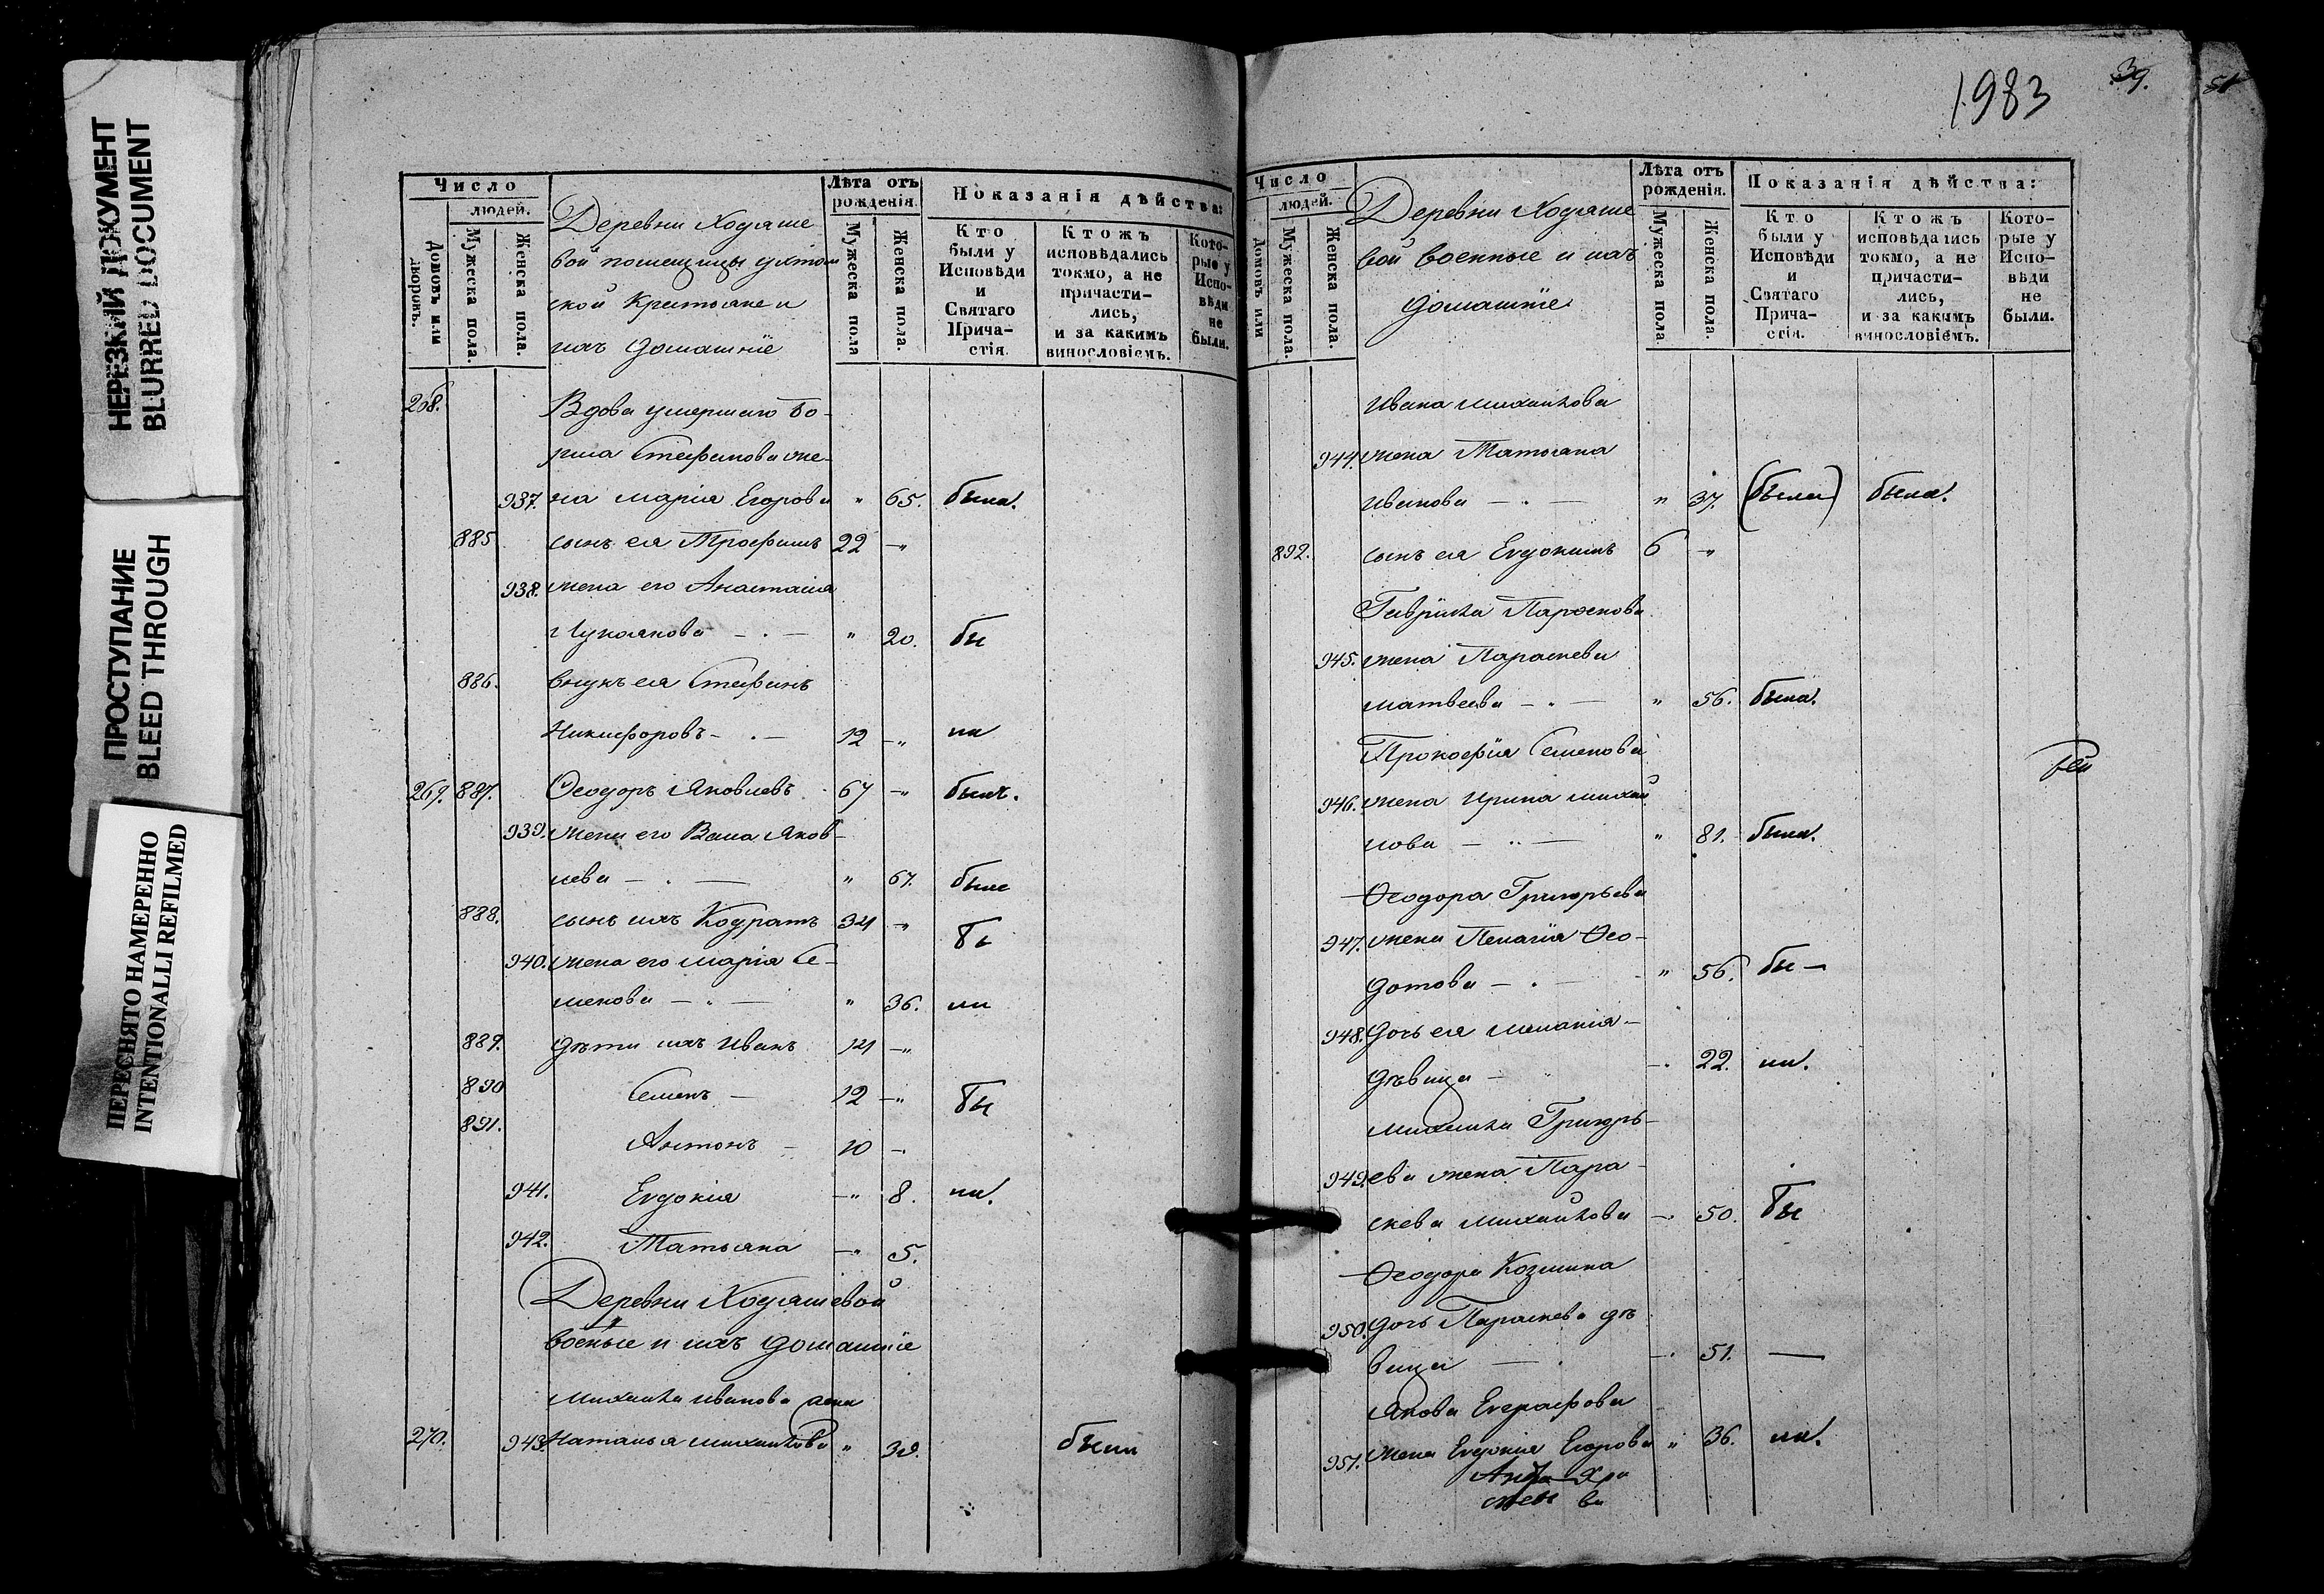 НЕРЕЗКИЙ ДОКУМЕНТ
BLURRED DOCUMENT
ПРОСТУПАНИЕ
BLEED THROUGH
ПЕРЕСНЯТО НАМЕРЕННО
INTENTIONALLI REFILMED
Число
людей.
Домовъ или дворовъ.
Мужеска пола.
Женска пола.
Деревни Ходяше
вой помещицы
ской Крестьяне и
ихъ домашніе
Лѣта отъ рожденія.
Мужеска пола
Женска пола.
Показанія дѣйства:
Кто были у Исповѣди и Святаго Прича-стія.
Ктожъ исповѣдались токмо, а не причасти-лись, и за какимъ винословіемъ.
Кото-рые у Испо-вѣди не были.
268. Вдова умершаго Бо-
риса Стефанова же-
937. на Марія Егорова " 65. была.
885 сынъ ея Трофимъ 22 -"
938. жена его Анастасія
Лукоянова - . - " 20. бы
886. внукъ ея Стефанъ
Никифоровъ - . - 12 -" ли
269. 887. Ѳеодоръ Яковлевъ 67 -" былъ.
939. жена его Васса Яков-
лева - . - " 67. были
888. сынъ ихъ Кодратъ 34 -" бы
940. жена его Марія Се-
менова - . - " 36. ли
889. дѣти ихъ Иванъ 14 -"
890 Семенъ - 12 -" бы
891. Антонъ - 10 -
941. Евдокія -" 8. ли.
942. Татьяна -" 5.
Деревни Ходяшевой
военые и ихъ домашніе
Михаила Иванова жена
270. 943. Наталья Михайлова " 39. были
1983
39.
51
Число
людей.
Домовъ или
Мужеска пола.
Женска пола.
Деревни Ходяше
вой военные и ихъ
домашніе
Лѣта отъ рожденія.
Мужеска пола
Женска пола.
Показанія дѣйства:
Кто были у Исповѣди и Святаго Прича-стія.
Ктожъ исповѣдались токмо, а не причасти-лись, и за какимъ винословіемъ.
Кото-рые у Испо-вѣди не были.
Ивана Михайлова
944. жена Татьяна
Иванова - . - " 37. (была) была.
892. сынъ ея Евдокимъ 6 -"
Гаврила Парѳенова
945. жена Параскева
Матвеева - . - " 56. была.
Прокофія Семенова
946. жена Ирина Михай
лова - .. - " 81. была.
Ѳеодора Григорьева
947. жена Пелагія Ѳео-
дотова - . - " 56. бы -
948. дочь ея Меланія -
дѣвица - -. 22. ли.
Михаила Григорь-
949. ева жена Пара-
скева Михайлова -. 50. бы
Ѳеодора Козмина
950. дочь Параскева дѣ
вица - . -. 51. —
Якова Евграфова
951. жена Евдокія Егорова " 36. ли.